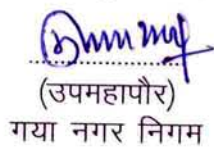 (उपमहापौर)
गया नगर निगम